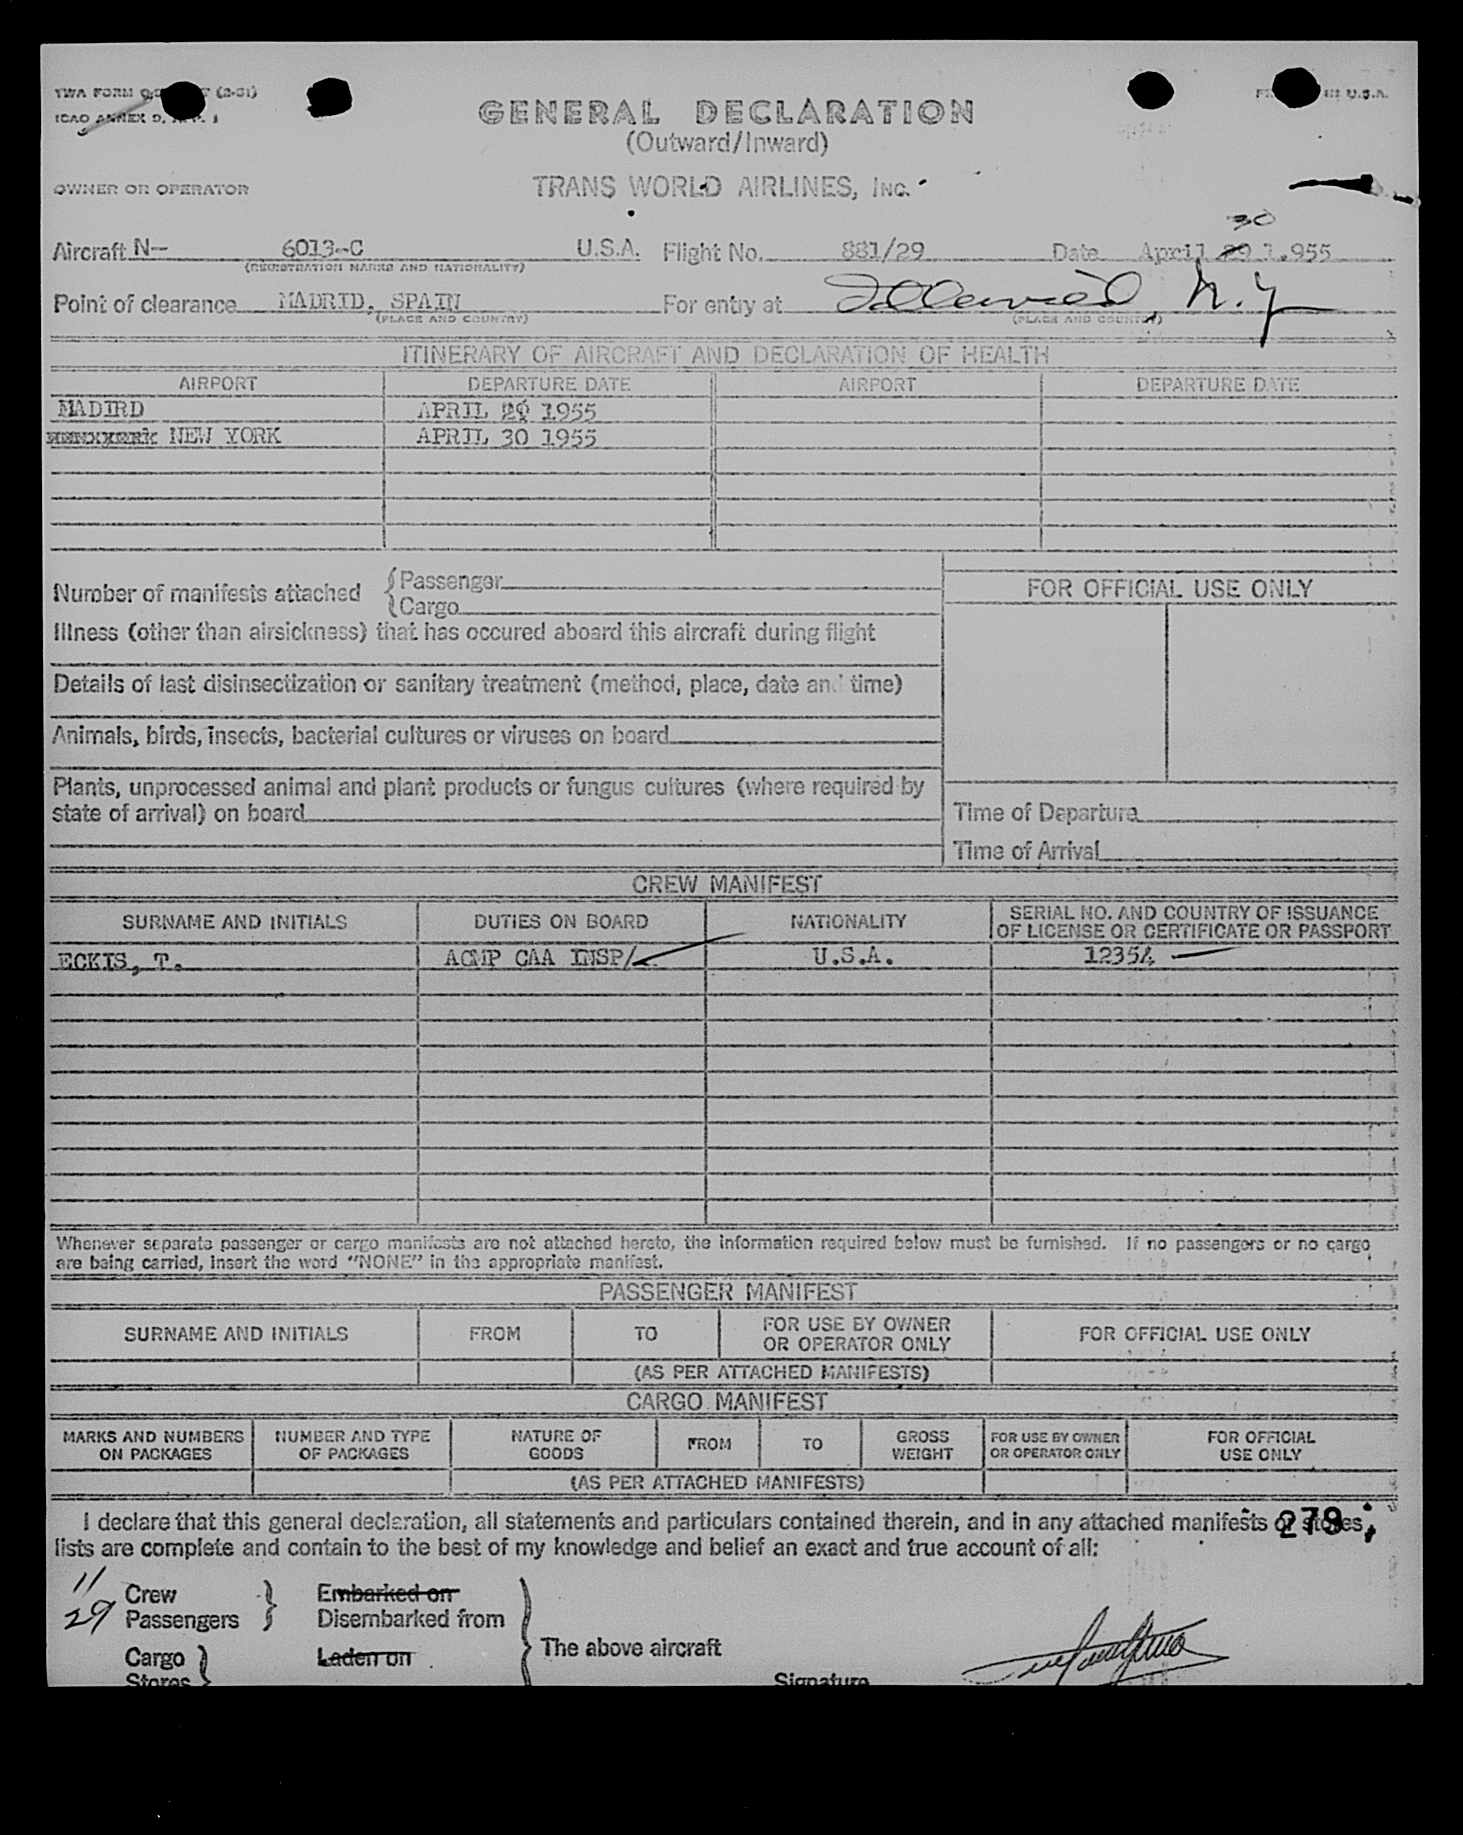 TWA FORM
ICAO ANNEX 9, APP. 1
U.S.A.
GENERAL DECLARATION
(Outward/Inward)
OWNER OR OPERATOR
TRANS WORLD AIRLINES, INC.
30
Aircraft N- 6013-C U.S.A. Flight No. 881/29 Date April 29 1.955
(REGISTRATION MARKS AND NATIONALITY)
Point of clearance MADRID, SPAIN For entry at Idlewild, N.Y
(PLACE AND COUNTRY) (PLACE AND COUNTRY)
ITINERARY OF AIRCRAFT AND DECLARATION OF HEALTH
AIRPORT DEPARTURE DATE AIRPORT DEPARTURE DATE
MADIRD APRIL 29 1955
NEW YORK APRIL 30 1955
Number of manifests attached { Passenger
{ Cargo
FOR OFFICIAL USE ONLY
Illness (other than airsickness) that has occured aboard this aircraft during flight
Details of last disinsectization or sanitary treatment (method, place, date and time)
Animals, birds, insects, bacterial cultures or viruses on board
Plants, unprocessed animal and plant products or fungus cultures (where required by
state of arrival) on board
Time of Departure
Time of Arrival
CREW MANIFEST
SURNAME AND INITIALS DUTIES ON BOARD NATIONALITY SERIAL NO. AND COUNTRY OF ISSUANCE
OF LICENSE OR CERTIFICATE OR PASSPORT
ECKIS, T. ACMP CAA INSP/ U.S.A. 12354
Whenever separate passenger or cargo manifests are not attached hereto, the information required below must be furnished. If no passengers or no cargo
are being carried, insert the word "NONE" in the appropriate manifest.
PASSENGER MANIFEST
SURNAME AND INITIALS FROM TO FOR USE BY OWNER
OR OPERATOR ONLY FOR OFFICIAL USE ONLY
(AS PER ATTACHED MANIFESTS)
CARGO MANIFEST
MARKS AND NUMBERS
ON PACKAGES NUMBER AND TYPE
OF PACKAGES NATURE OF
GOODS FROM TO GROSS
WEIGHT FOR USE BY OWNER
OR OPERATOR ONLY FOR OFFICIAL
USE ONLY
(AS PER ATTACHED MANIFESTS)
I declare that this general declaration, all statements and particulars contained therein, and in any attached manifests or stores
279
lists are complete and contain to the best of my knowledge and belief an exact and true account of all:
11 Crew Embarked on
29 Passengers Disembarked from
The above aircraft
Cargo Laden on
Stores
Signature